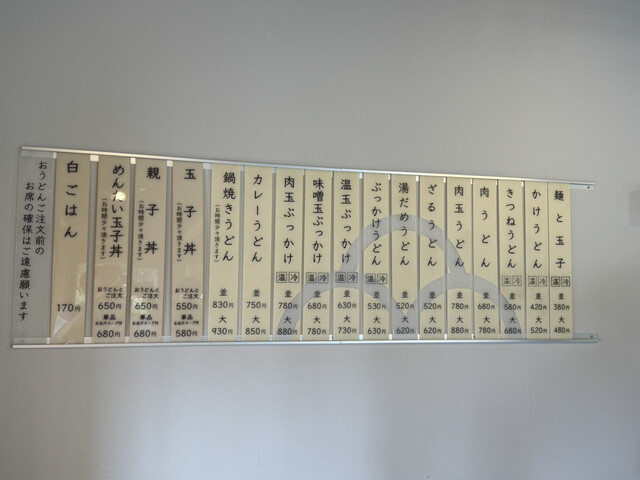 麺と玉子
温 冷
並
380円
大
480円
かけうどん
温 冷
並
420円
大
520円
きつねうどん
温 冷
並
580円
大
680円
肉うどん
並
680円
大
780円
肉玉うどん
並
780円
大
880円
ざるうどん
並
520円
大
620円
湯だめうどん
並
520円
大
620円
ぶっかけうどん
温 冷
並
530円
大
630円
温玉ぶっかけ
温 冷
並
630円
大
730円
味噌玉ぶっかけ
温 冷
並
680円
大
780円
肉玉ぶっかけ
温 冷
並
780円
大
880円
カレーうどん
並
750円
大
850円
鍋焼きうどん
(お時間少々頂きます)
並
830円
大
930円
玉子丼
(お時間少々頂きます)
おうどんと
ご注文
550円
単品
お吸物スープ付
580円
親子丼
(お時間少々頂きます)
おうどんと
ご注文
650円
単品
680円
めんたい玉子丼
(お時間少々頂きます)
おうどんと
ご注文
650円
単品
680円
白ごはん
170円
おうどんご注文前の
お席の確保はご遠慮願います